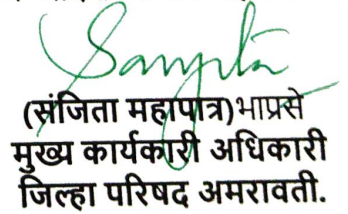 Sanjita
(संजिता महापात्र)भाप्रसे
मुख्य कार्यकारी अधिकारी
जिल्हा परिषद अमरावती.